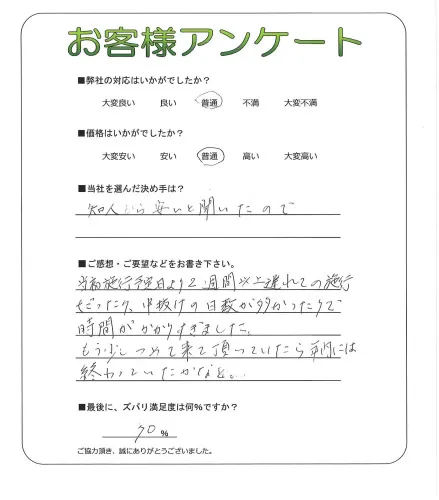 お客様アンケート
■弊社の対応はいかがでしたか？
大変良い　良い　普通　不満　大変不満
■価格はいかがでしたか？
大変安い　安い　普通　高い　大変高い
■当社を選んだ決め手は？
知人から安いと聞いたので
■ご感想・ご要望などをお書き下さい。
当初施行予定日より2週間以上遅れての施行
だったり、中抜けの日数が多かったりで
時間がかかりすぎました。
もう少しつめて来て頂っていたら年内には
終わっていたかなと。
■最後に、ズバリ満足度は何%ですか？
70 %
ご協力頂き、誠にありがとうございました。